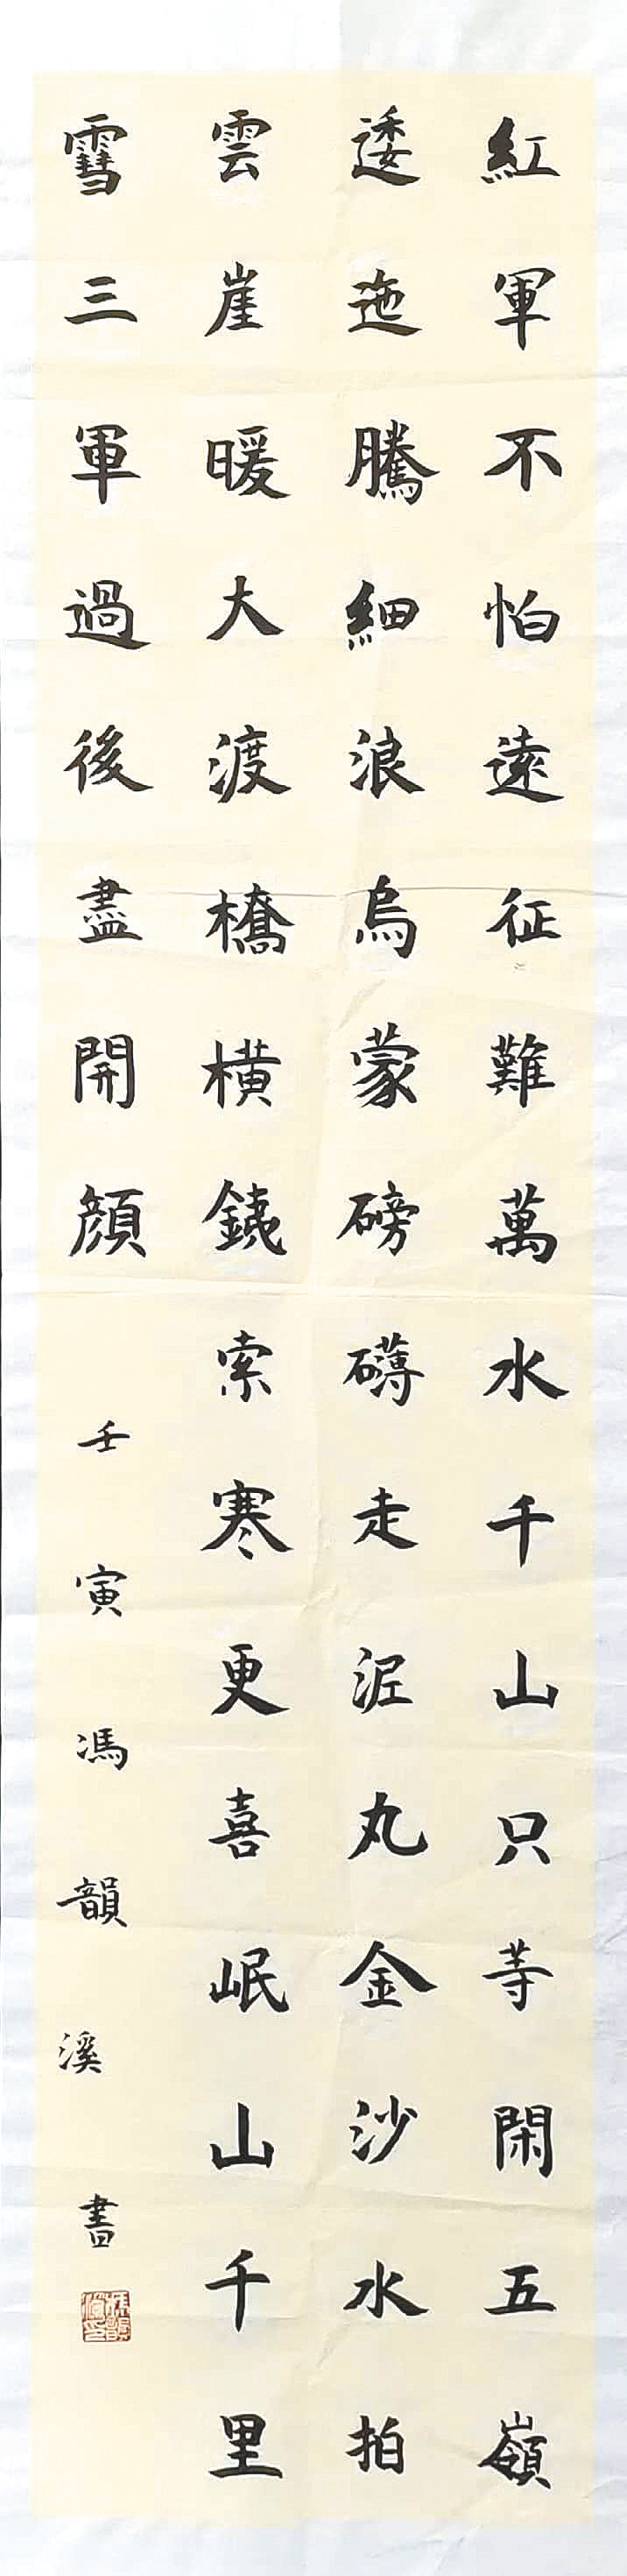 紅軍不怕遠征難萬水千山只䓁閑五嶺
逶迤騰細浪烏蒙磅礴走泥丸金沙水拍
雲崖暖大渡橋橫鐵索寒更喜岷山千里
雪三軍過後盡開顏
壬寅馮韻溪書